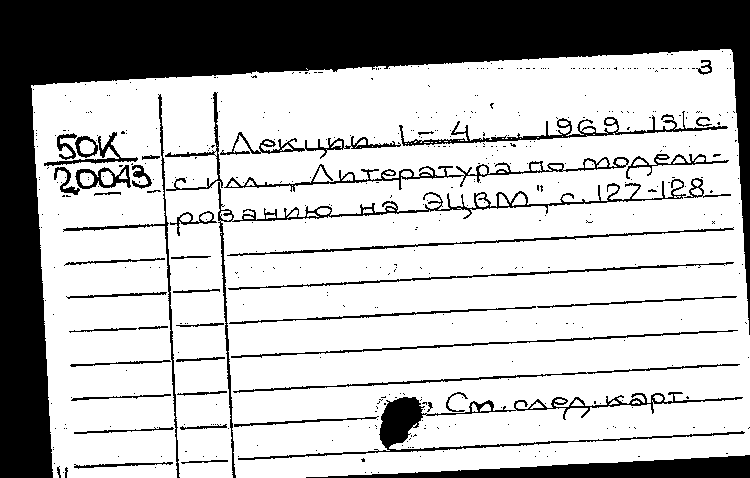 3
50К
20043
Лекции 1-4. 1969. 131 с.
с илл. „Литература по модели-
рованию на ЭЦВМ", с. 127-128.
См. след. карт.